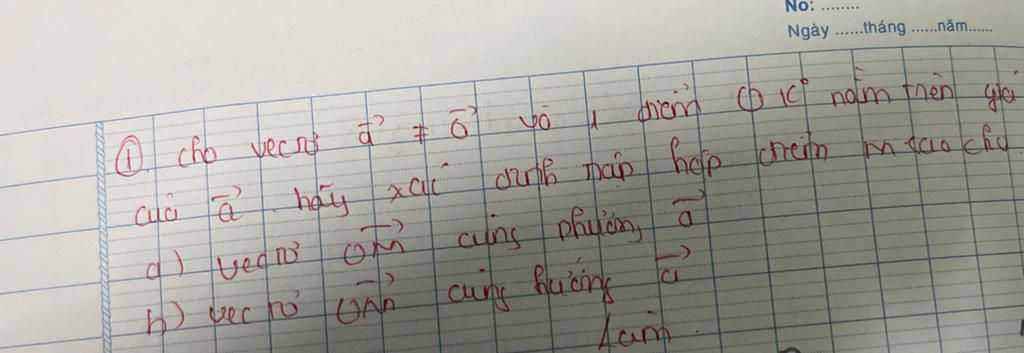 No: ........
Ngày ......tháng ......năm......
① cho vectơ a⃗ ≠ 0⃗ và 1 điểm O k° nằm trên giá
của a⃗ hãy xác định tập hợp điểm M sao cho
a) vectơ OM⃗ cùng phương a⃗
b) vectơ OM⃗ cùng hướng a⃗
Làm